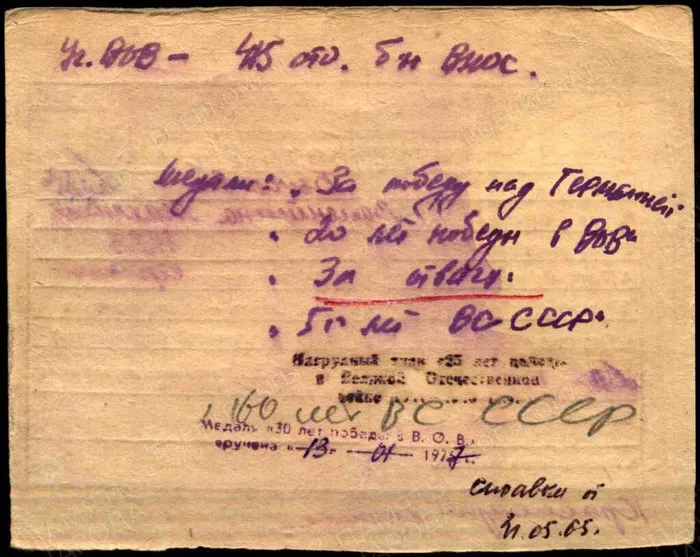 Уч. ВОВ — 45 отд. бн ВНОС.
Медали: "За победу над Германией
" 20 лет победы в ВОВ"
" За отвагу.
" 50 лет ВС СССР"
Нагрудный знак «25 лет победы
в Великой Отечественной
войне
" 60 лет ВС СССР
Медаль «30 лет победы в В. О. В.»
вручена «13» 01 1977 г.
справка от
21.05.65.